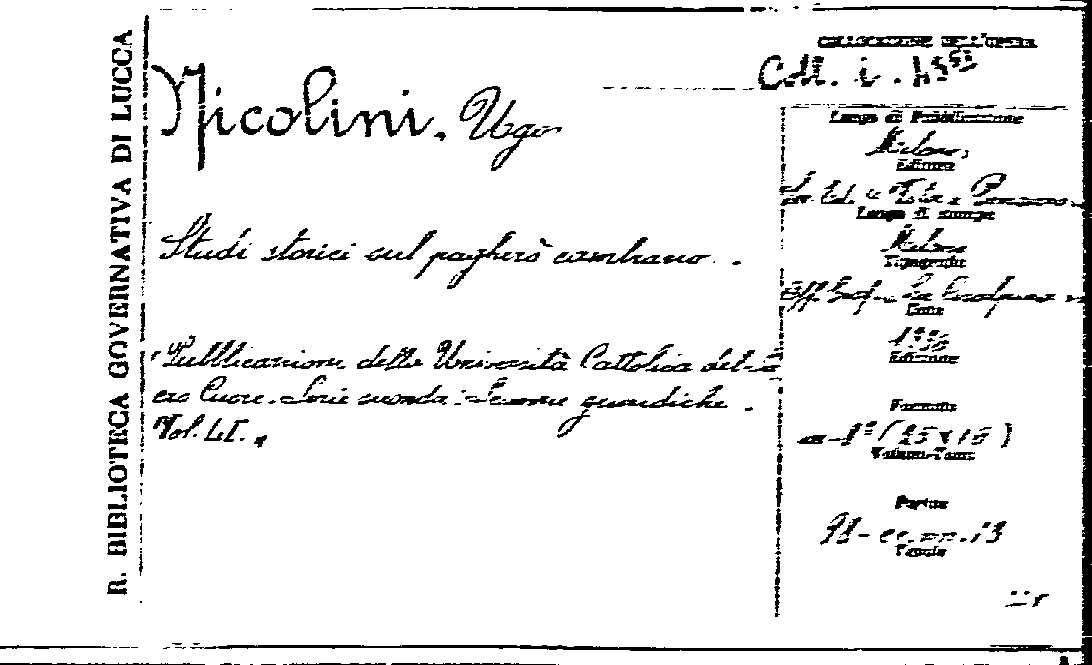 R. BIBLIOTECA GOVERNATIVA DI LUCCA
COLLOCAZIONE DELL'OPERA
Coll. i.
Nicolini, Ugo
Studi storici sul pagherò cambiario.
Pubblicazione della Università Cattolica del Sa
cro Cuore. Serie seconda: Scienze giuridiche.
Vol. LI.
Luogo di Pubblicazione
Milano,
Editore
Luogo di stampa
Milano
Tipografia
Data
1936
Edizione
Formato
in-8° (25x16)
Volumi-Tomi
Partun
Tavole